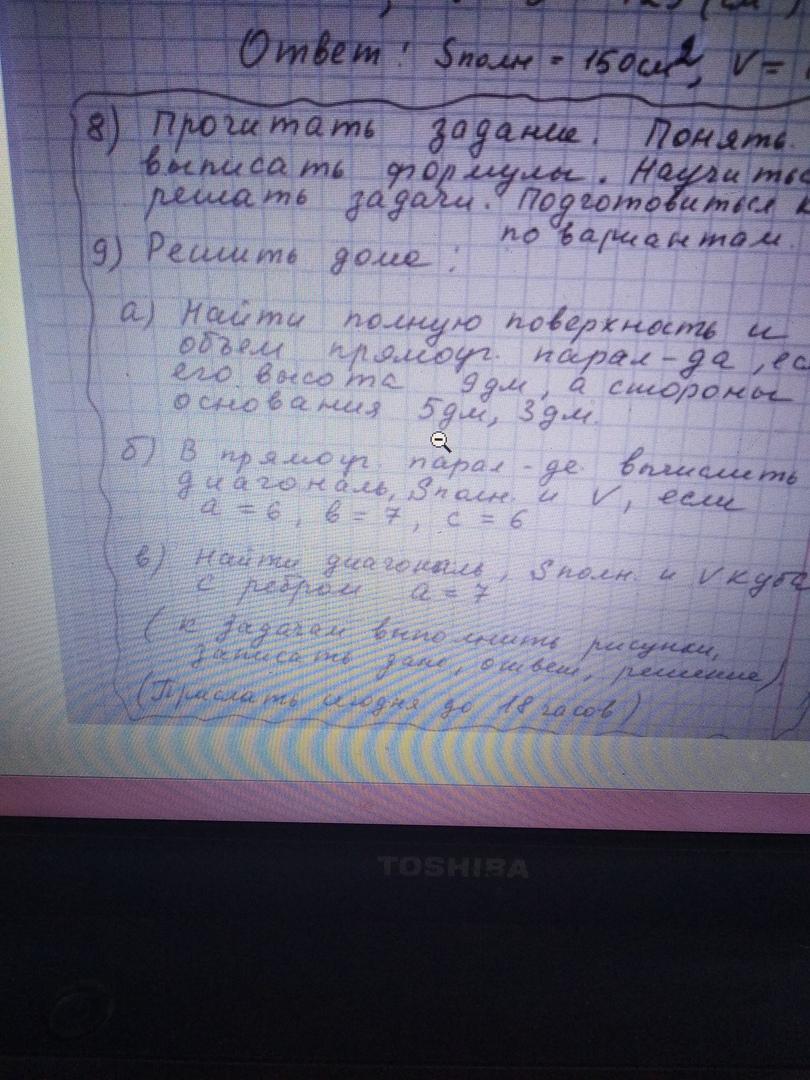 Ответ: Sполн = 150см², V =
8) Прочитать задание. Понять.
выписать формулы. Научиться
решать задачи. Подготовиться к
по вариантам.
9) Решить дома:
а) Найти полную поверхность и
объём прямоуг. парал-да, если
его высота 9дм, а стороны
основания 5дм, 3дм.
б) В прямоуг. парал-де вычислить
диагональ, Sполн. и V, если
а = 6, в = 7, с = 6
в) Найти диагональ, Sполн. и V куба
с ребром а = 7
(к задачам выполнить рисунки,
записать дано, ответ, решение)
(Прислать сегодня до 18 часов)
TOSHIBA